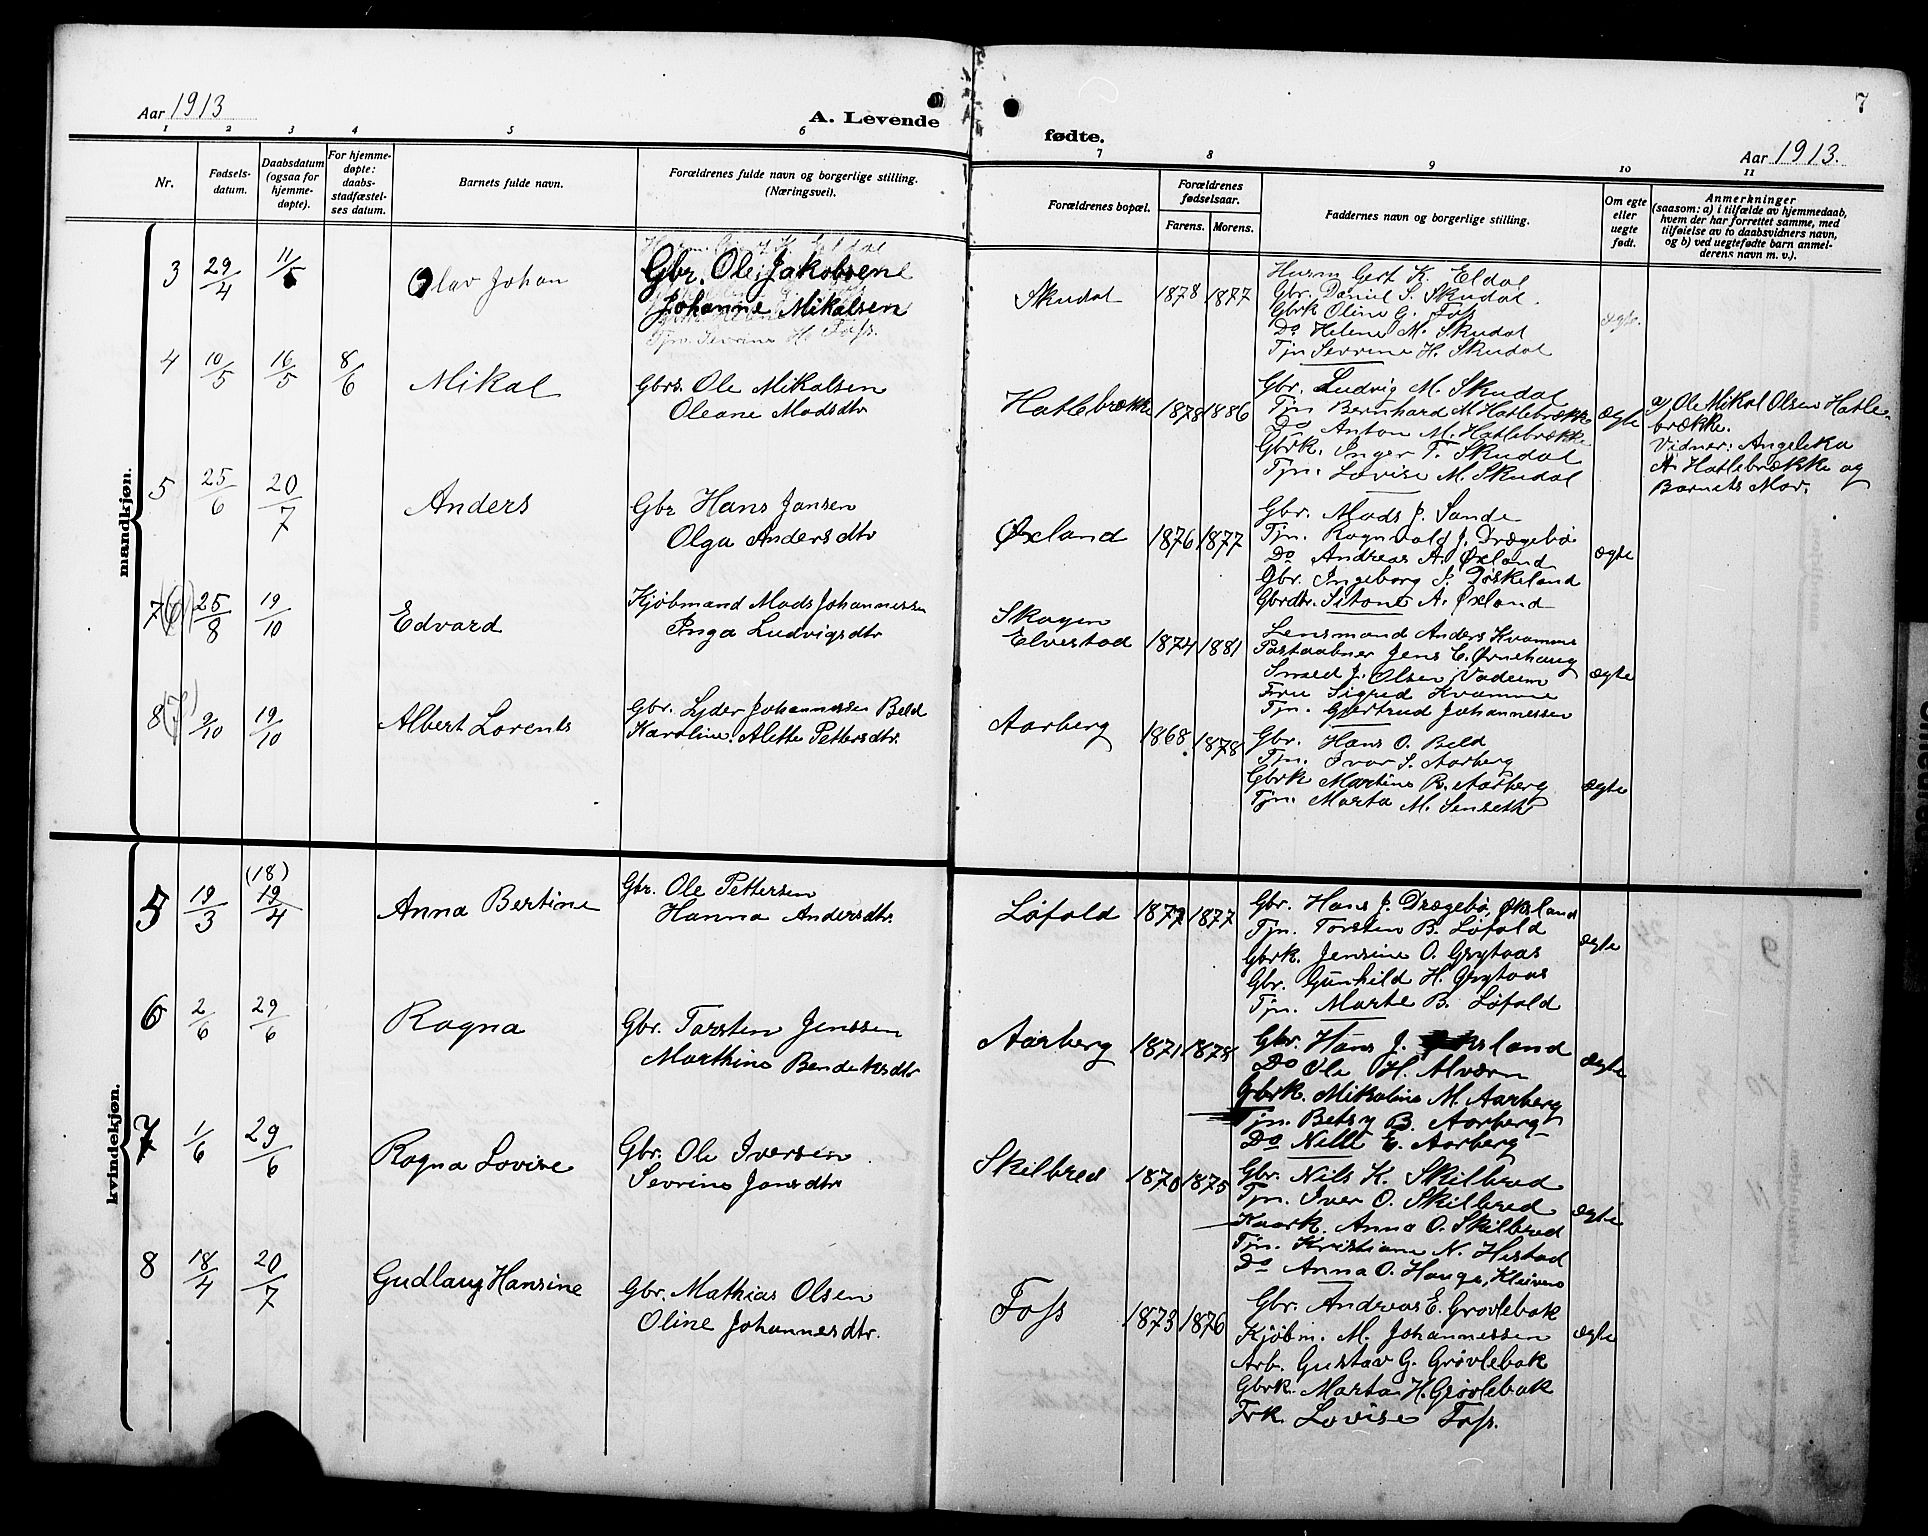 Aar 1913
A. Levende
fødte.
7
Aar 1913.
1 2 3 4 5 6 7 8 9 10 11
Nr.
Fødsels-
datum.
Daabsdatum
(ogsaa for
hjemme-
døpte).
For hjemme-
døpte:
daabs-
stadfæstel-
ses datum.
Barnets fulde navn.
Forældrenes fulde navn og borgerlige stilling.
(Næringsvei).
Forældrenes bopæl.
Forældrenes
fødselsaar.
Farens. Morens.
Faddernes navn og borgerlige stilling.
Om egte
eller
uegte
født.
Anmerkninger
(saasom: a) i tilfælde av hjemmedaab,
hvem der har forrettet samme, med
tilføielse av to daabsvidners navn,
og b) ved uegtefødte barn anmel-
derens navn m. v.).
mandkjøn.
3 29/4 11/5 Olav Johan
Gbr. Ole Jakobsen
Johanne Mikalsen
Skudal 1878 1877
Husm Gert K. Eldal
Gbr. Daniel S. Skudal.
Gbrk Oline G. Foss
Do Helene M. Skudal
Tjn Sevrine H. Skudal
ægte.
4 10/5 16/5 8/6 Mikal
Gbrs. Ole Mikalsen
Oleane Madsdtr
Hatlebrække 1878 1886
Gbr. Ludvig M. Skudal
Tjn Bernhard M. Hatlebrække
Do Anton M. Hatlebrække
Gbrk. Inger T. Skudal
Tjn. Lovise M. Skudal
ægte
a) Ole Mikal Olsen Hatle-
brække.
Vidner: Angelika
A. Hatlebrække og
Barnets Mor.
5 25/6 20/7 Anders
Gbr Hans Jansen
Olga Andersdtr
Øxland 1876 1877
Gbr. Mads J. Sande
Tjn. Ragnvald J. Drægebø
Do Andreas A. Øxland
Gbr. Ingeborg J. Døskeland
Gbrdtr. A. Øxland
ægte
7(6) 25/8 19/10 Edvard
Kjøbmand Mads Johannessen
Inga Ludvigsdtr
Skogen
Elvestad 1874 1881
Lensmand Anders Kvamme
Postaabner Jens E. Ørnehaug
Smed J. Olsen Vadeim
Fru Sigrid Kvamme
Tjn. Gjertrud Johannessen
ægte
8(7) 9/10 19/10 Albert Lorents
Gbr. Lyder Johannessen Beld
Karoline Alette Pettersdtr.
Aarberg 1868 1878
Gbr. Hans O. Beld
Tjn. Ivar S. Aarberg
Gbrk Martine R. Aarberg
Tjn. Marta M. Senseth
ægte
kvindekjøn.
5 19/3 (18) 19/4 Anna Bertine
Gbr. Ole Pettersen
Hanna Andersdtr.
Løfald 1872 1877
Gbr. Hans J. Drægebø, Øksland
Tjn. Torsten B. Løfald
Gbrk. Jensine O. Grytaas
Gbr. Gunhild H. Grytaas
Tjn. Marte B. Løfald
ægte
6 2/6 29/6 Ragna
Gbr. Torsten Jenssen
Marthine Bendeksdtr
Aarberg 1871 1878
Gbr. Hans J. Øksland
Do Ole H. Alværn
Gbrk. Mikaline M. Aarberg
Tjn. Betsy B. Aarberg
Do Nille E. Aarberg
ægte
7 1/6 29/6 Ragna Lovise
Gbr. Ole Iversen
Sevrine Jansdtr
Skilbred 1870 1875
Gbr. Nils K. Skilbred
Tjn. Iver O. Skilbred
Kaark. Anna O. Skilbred
Tjn. Kristiane N. Hestad
Do Anna O. Hauge, Kleiven
ægte
8 18/4 20/7 Gudlaug Hansine
Gbr. Mathias Olsen
Oline Johannesdtr.
Foss 1873 1876
Gbr. Andreas E. Grøvlebak
Kjøbm. M. Johannessen
Arb. Gustav G. Grøvlebak
Gbrk. Marta H. Grøvlebak
Frk. Lovise Foss.
ægte